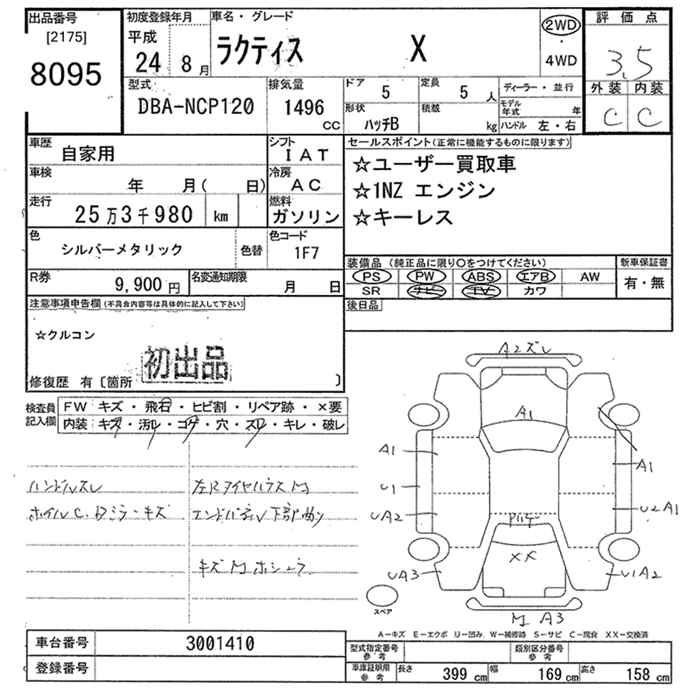 出品番号
[2175]
8095
初度登録年月
平成
24 8月
車名・グレード
ラクティス X
2WD
・
4WD
評価点
3.5
外装 内装
C C
型式
DBA-NCP120
排気量
1496
CC
ドア
5
定員
5 人
形状
ハッチB
積載
kg
ディーラー・並行
モデル年式 年
ハンドル 左・右
車歴
自家用
シフト
IAT
車検
年 月( 日)
冷房
AC
走行
25万3千980 km
燃料
ガソリン
色
シルバーメタリック
色替
色コード
1F7
R券
9,900円
名変通知期限
月 日
セールスポイント(正常に機能するものに限ります)
☆ユーザー買取車
☆1NZ エンジン
☆キーレス
装備品 (純正品に限り○をつけてください)
PS PW ABS エアB AW
SR ナビ TV カワ
新車保証書
有・無
後日品
注意事項申告欄(不具合内容等は具体的に記入して下さい)
☆クルコン
初出品
修復歴 有〔箇所 〕
検査員
記入欄
FW キズ・飛石・ヒビ割・リペア跡・×要
内装 キズ・汚レ・コゲ・穴・スレ・キレ・破レ
ハンドルスレ
ホイルC.Bミラーキズ
エンドパネル下部曲り
A2ズレ
A1
A1
A1
U1
UA2
U2A1
XX
UA3
U1A2
A3
スペア
A-キズ E-エクボ U-凹み W-補修跡 S-サビ C-腐食 XX-交換済
車台番号
3001410
登録番号
型式指定番号
参考
類別区分番号
参考
車庫証明用
参考
長さ 399 cm 幅 169 cm 高さ 158 cm